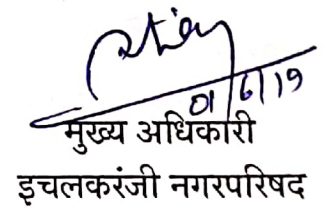 01/6/19
मुख्य अधिकारी
इचलकरंजी नगरपरिषद